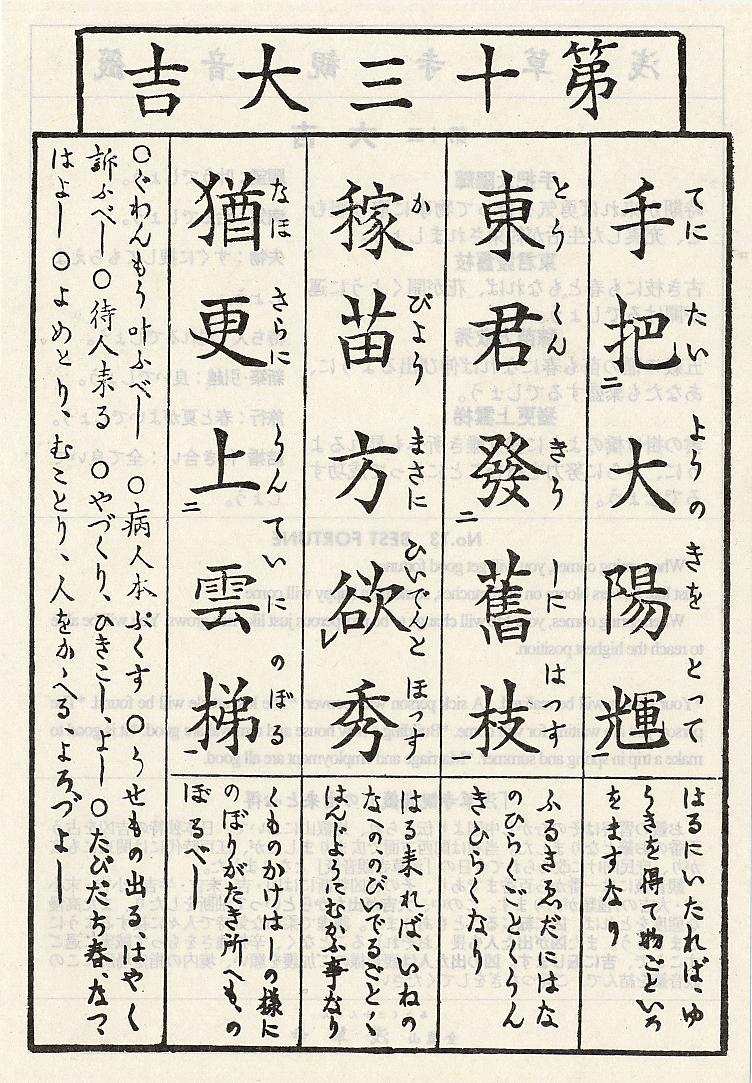 第十三大吉
手把大陽輝
てに たい ようの きを とつて
東君發舊枝
とうくん きう しに はつす
稼苗方欲秀
か びよう まさに ひいでんと ほつす
猶更上雲梯
なほ さらに うんていに のぼる
はるにいたればゆ
うきを得て物ごといろ
をますなり
ふるきゑだにはな
のひらくごとくうん
きひらくなり
はる来ればいねの
なへののびいでるごとく
はんじようにむかふ事なり
くものかけはしの様に
のぼりがたき所へもの
ぼるべし
〇ぐわんもう叶ふべし 〇病人本ぷくす 〇うせもの出るはやく
訴ふべし 〇待人来る 〇やづくり、ひきこし、よし 〇たびだち春、なつ
はよし 〇よめとり、むことり、人をかゝへる、よろづよし